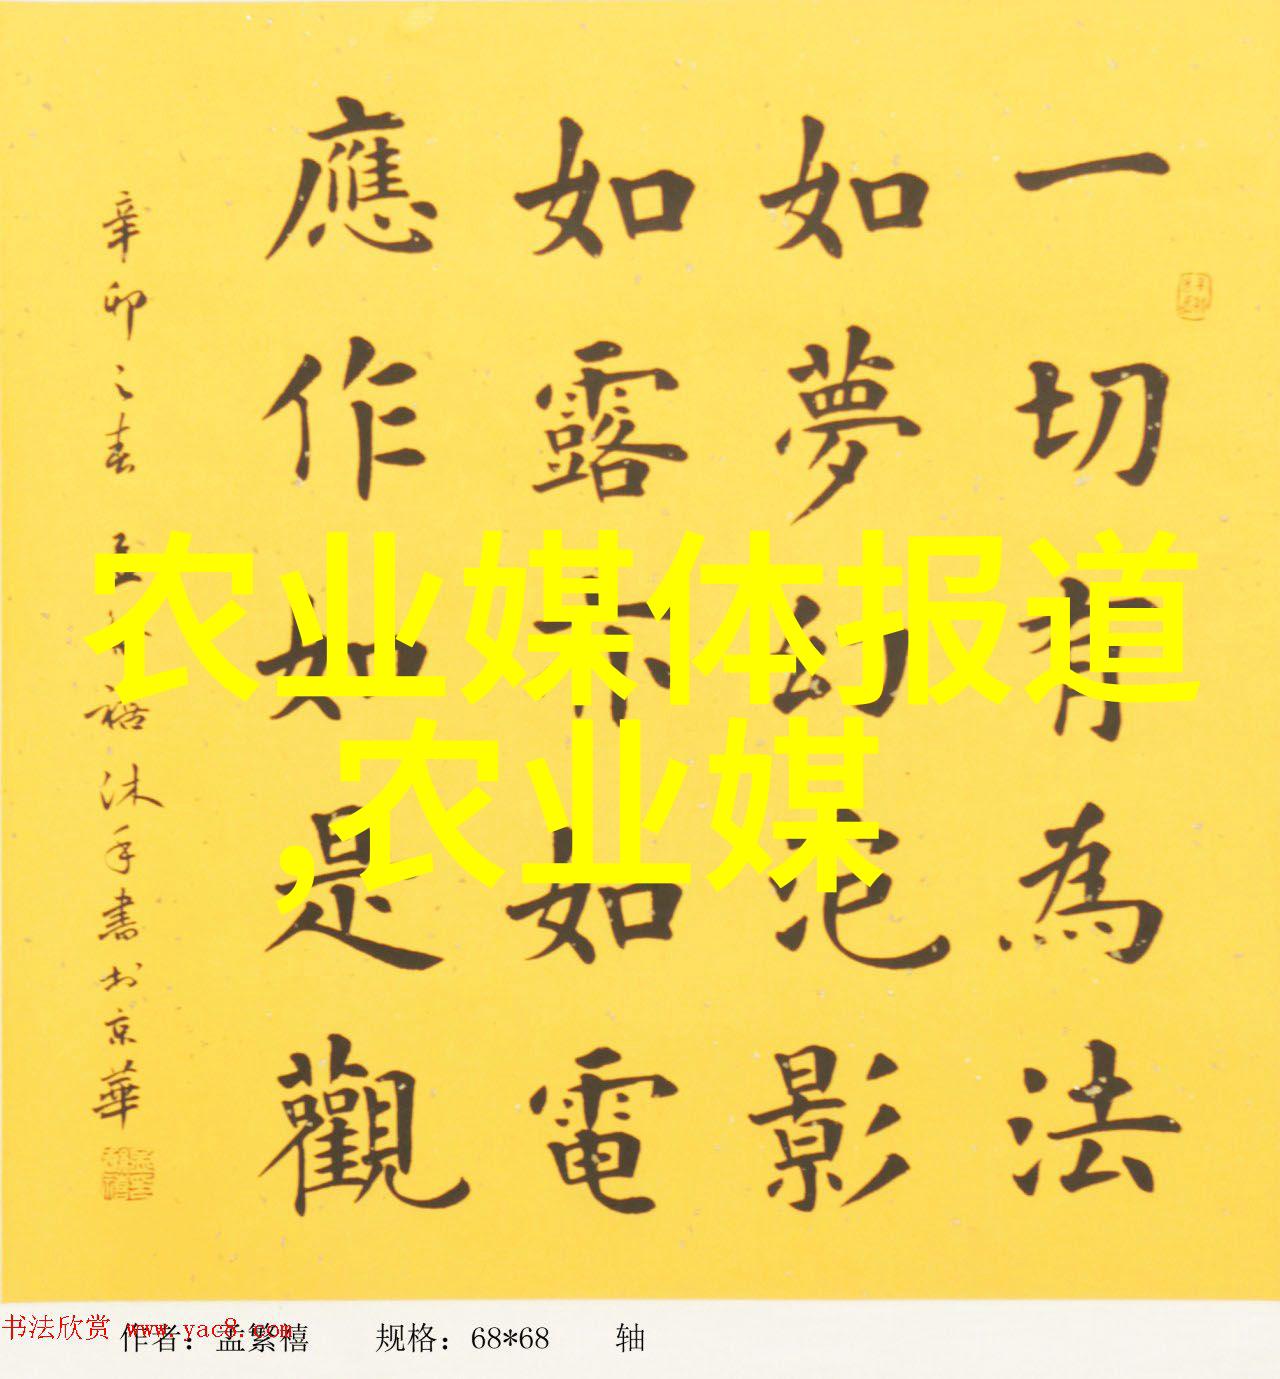 一切有為法
如夢幻泡影
如露亦如電
應作如是觀
辛卯之春 孟繁禧沐手書於京華
农业媒体报道
,农业媒
书法欣赏 www.yac8.com
作者：孟繁禧 规格：68*68 轴